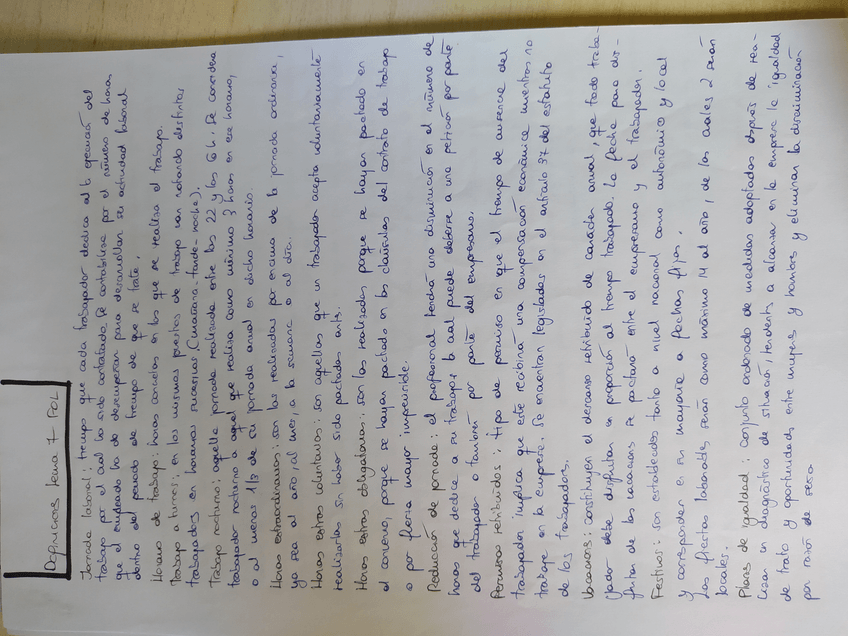 Definiciones tema 7 FOL
Jornada laboral: tiempo que cada trabajador dedica al la ejecución del
trabajo por el cual ha sido contratado. Se contabiliza por el número de horas
que el empleado ha de desempeñar para desarrollar su actividad laboral
dentro del periodo de tiempo de que se trate.
Horario de trabajo: horas concretas en las que se realiza el trabajo.
Trabajo a turnos: en los mismos puestos de trabajo van rotando distintos
trabajadores en horarios sucesivos (mañana-tarde-noche).
Trabajo nocturno: aquella jornada realizada entre las 22 y las 6h. Se considera
trabajador nocturno a aquel que realiza como mínimo 3 horas en ese horario,
o al menos 1/3 de su jornada anual en dicho horario.
Horas extraordinarias: son las realizadas por encima de la jornada ordinaria,
ya sea al año, al mes, a la semana o al día.
Horas extras voluntarias: son aquellas que un trabajador acepta voluntariamente
realizarlas sin haber sido pactadas ants.
Horas extras obligatorias: son las realizadas porque se hayan pactado en
el convenio, porque se hayan pactado en las claúsulas del contrato de trabajo
o por fuerza mayor imprevisible.
Reducción de jornada: el profesional tendrá una disminución en el número de
horas que dedica a su trabajo, la cual puede deberse a una petición por parte
del trabajador o también por parte del empresario.
Permisos retribuidos: tipo de permiso en que el tiempo de ausencia del
trabajador implica que este recibirá una compensación económica mientras no
trabaje en la empresa. Se encuentran legislados en el artículo 37 del estatuto
de los trabajadores.
Vacaciones: constituyen el descanso retribuido de caracter anual, que todo traba-
jador debe disfrutar en proporción al tiempo trabajado. La fecha para dis-
frutar de las vacaciones se pactará entre el empresario y el trabajador.
Festivos: son establecidos tanto a nivel nacional como autonómico y local
y corresponden en su mayoría a fechas fijas.
Las fiestas laborables serán como máximo 14 al año, de las cuales 2 serán
locales.
Planes de igualdad: conjunto ordenado de medidas adoptadas después de rea-
lizar un diagnóstico de situación, tendents a alcanzar en la empresa la igualdad
de trato y oportunidades entre mujeres y hombres y eliminar la discriminación
por razón de sexo